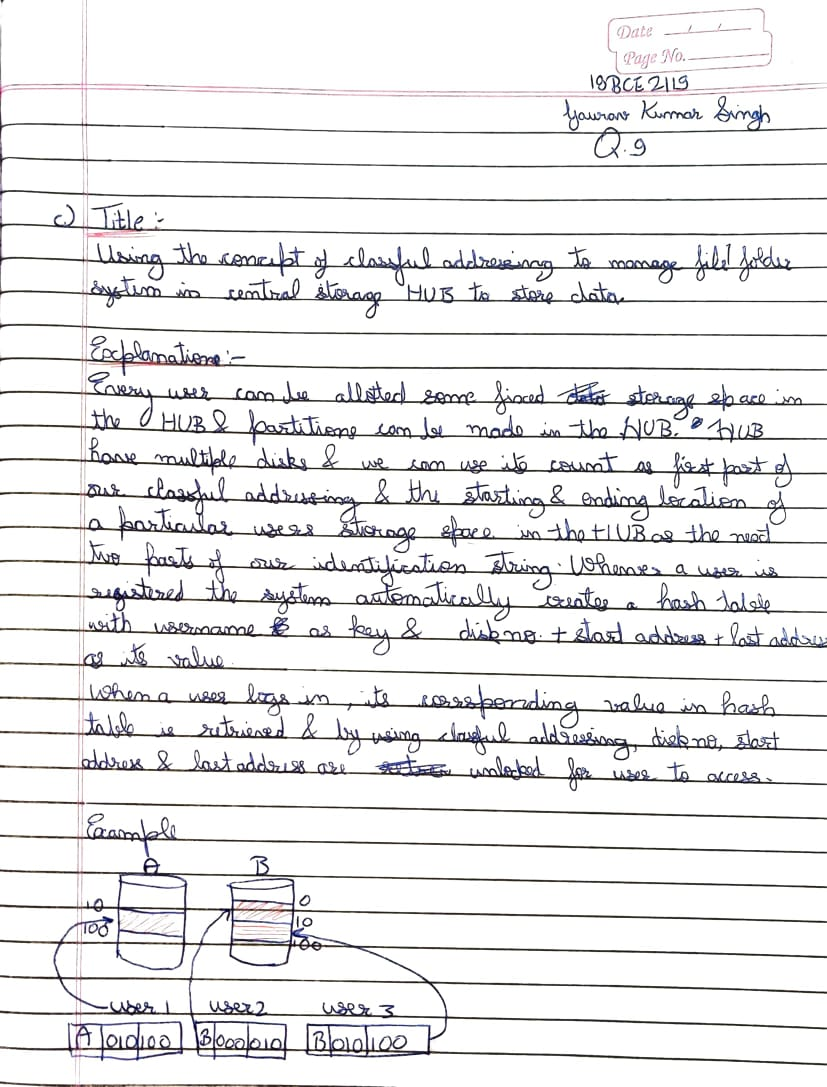 Date / /
Page No.
18BCE2119
Gaurav Kumar Singh
Q.9
c) Title :-
Using the concept of classful addressing to manage file/folder
system in central storage HUB to store data.
Explanation :-
Every user can be allotted some fixed storage space in
the HUB & partitions can be made in the HUB. HUB
have multiple disks & we can use its count as first part of
our classful addressing & the starting & ending location of
a particular users storage space in the HUB as the next
two parts of our identification string. Whenever a user is
registered the system automatically creates a hash table
with username as key & disk no. + start address + last address
as its value.
When a user logs in, its corresponding value in hash
table is retrieved & by using classful addressing, disk no, start
address & last address are unlocked for user to access.
Example
A B
10 0
100 10
100
user 1 user 2 user 3
A|010|100 B|000|010 B|010|100